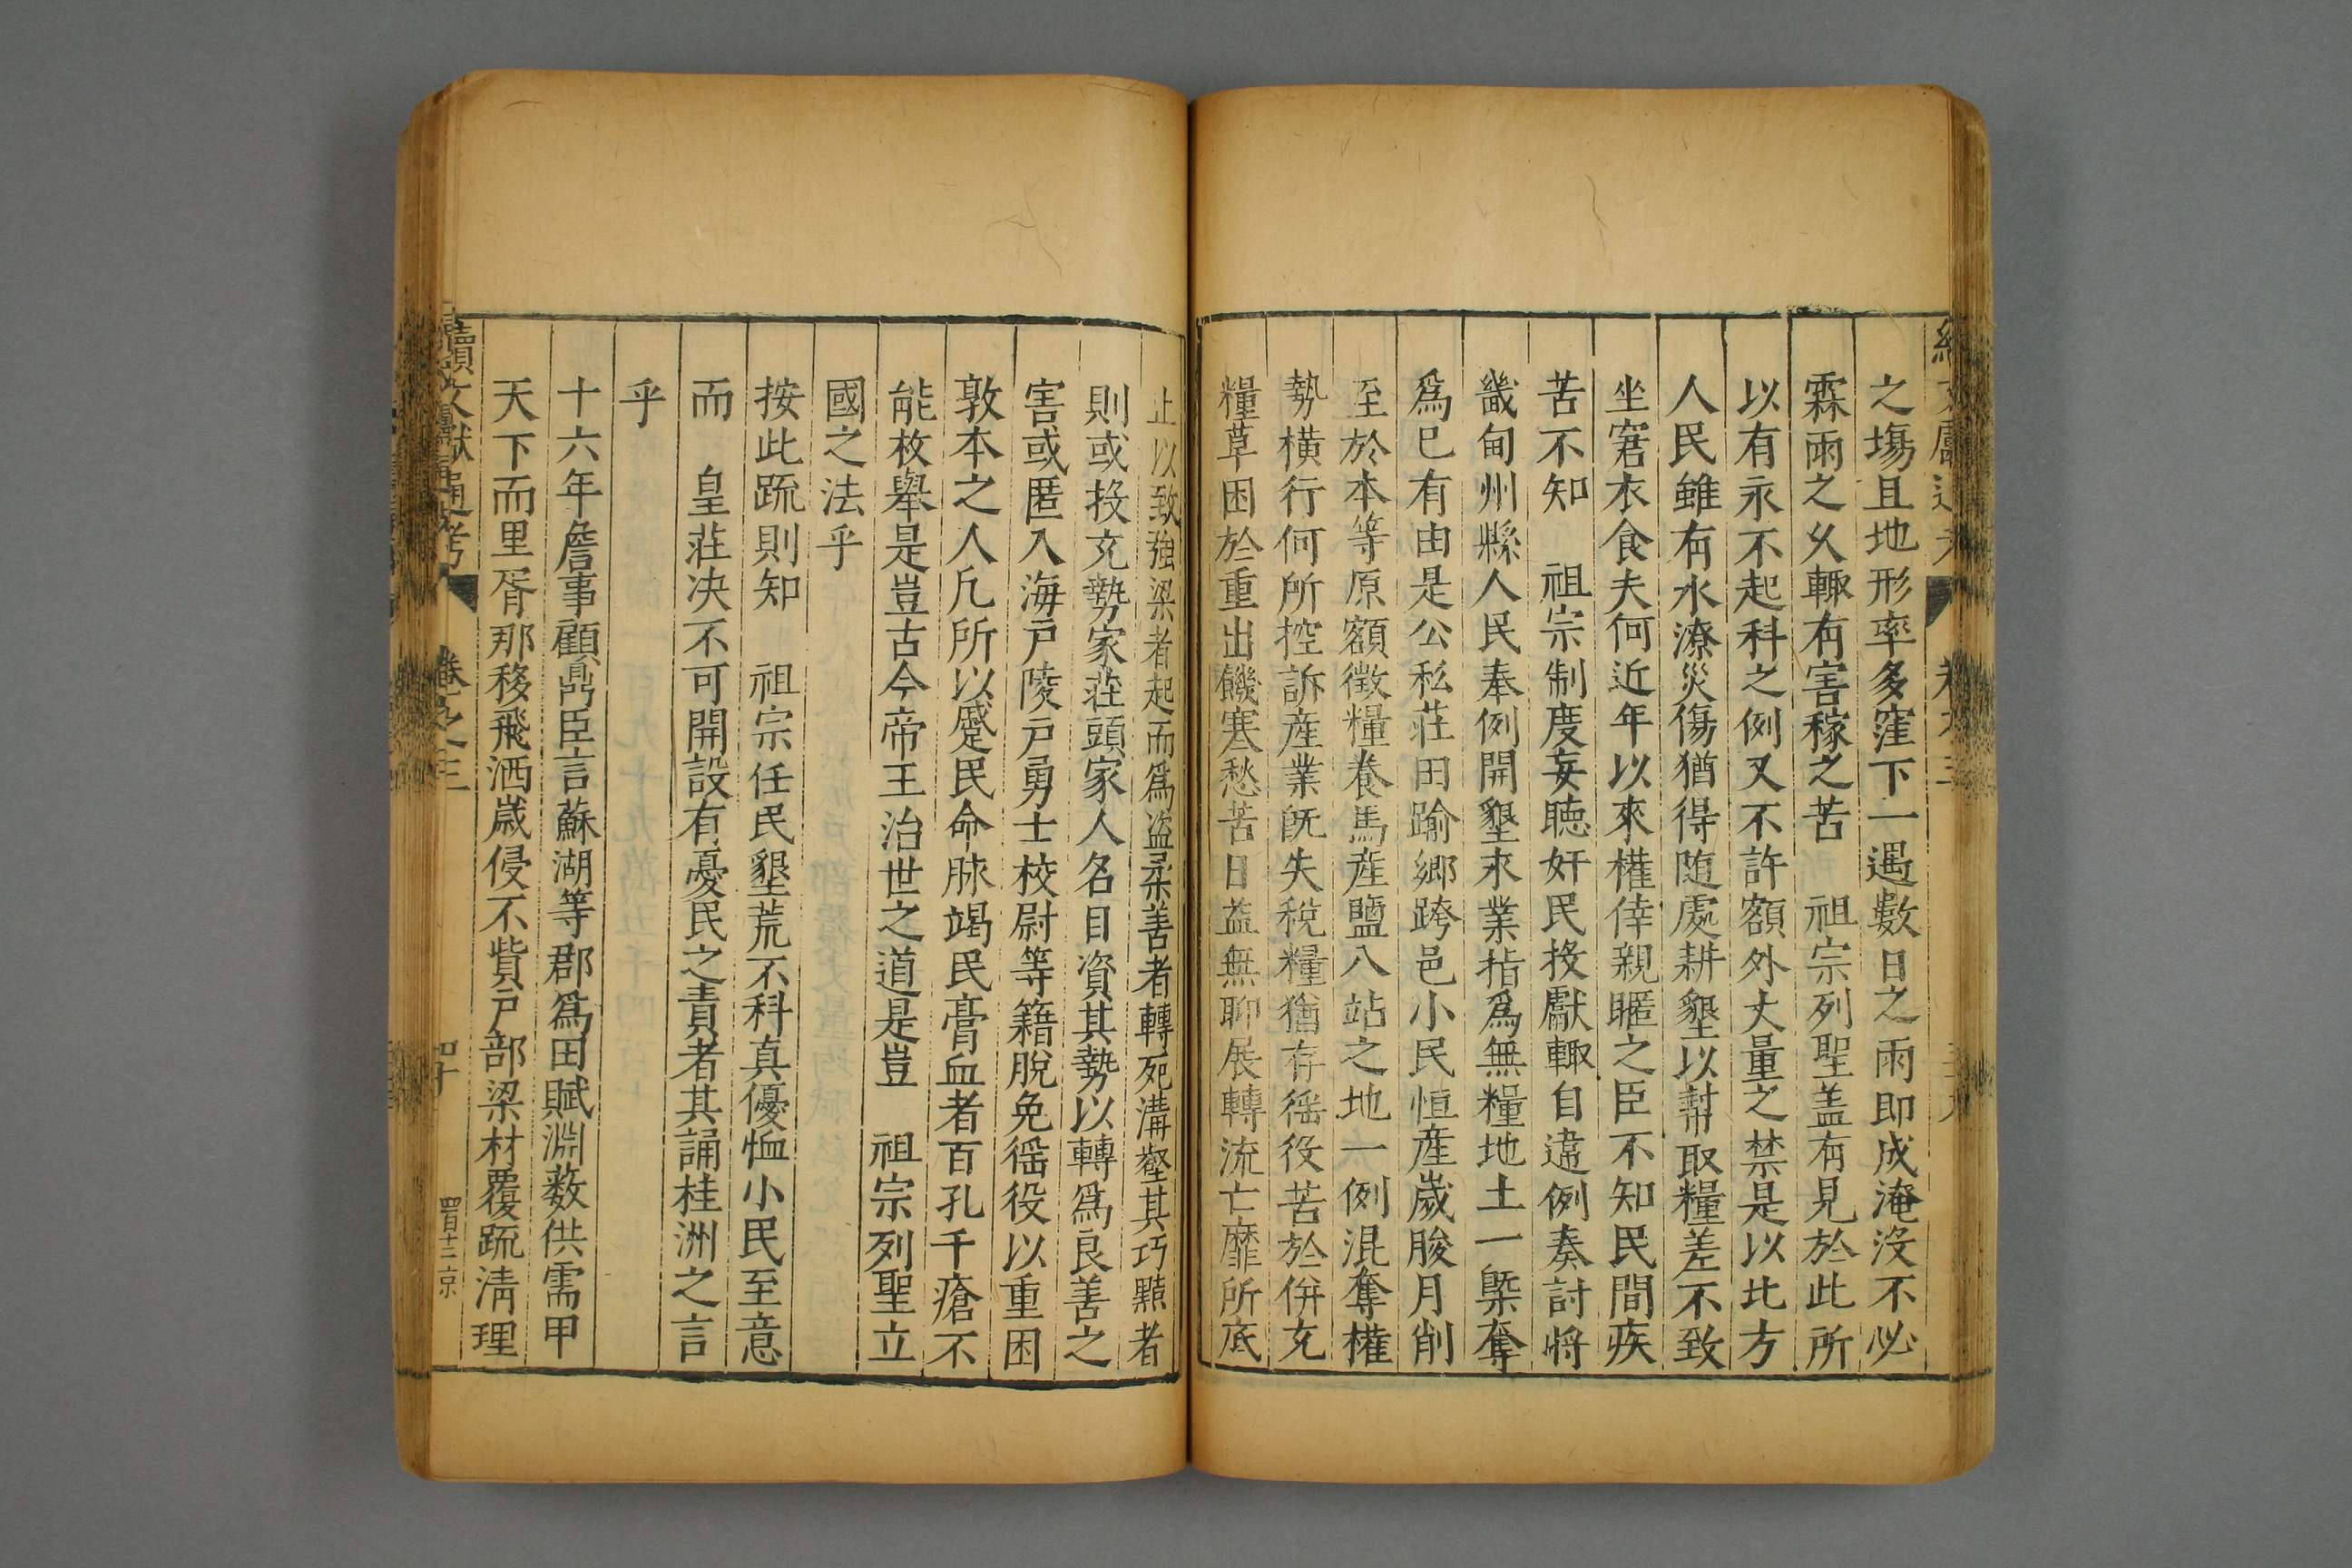 之塲且地形率多窪下一遇數日之雨即成淹沒不必
霖雨之久輙有害稼之苦　祖宗列聖盖有見於此所
以有永不起科之例又不許額外丈量之禁是以北方
人民雖有水潦災傷猶得随處耕墾以幇取糧差不致
坐窘衣食夫何近年以來權倖親暱之臣不知民間疾
苦不知　祖宗制度妄聽奸民投獻輙自違例奏討將
畿甸州縣人民奉例開墾永業指爲無糧地土一槩奪
爲已有由是公私莊田踰鄉跨邑小民恒産歲朘月削
至於本等原額徵糧養馬産鹽入站之地一例混奪權
勢橫行何所控訴産業既失稅糧猶存徭役苦於併充
糧草困於重出饑寒愁苦日益無聊展轉流亡靡所底
止以致強梁者起而爲盗柔善者轉死溝壑其巧黠者
則或投充勢家莊頭家人名目資其勢以轉爲良善之
害或匿入海戸陵戸勇士校尉等籍脫免徭役以重困
敦本之人凡所以蹙民命脉竭民膏血者百孔千瘡不
能枚舉是豈古今帝王治世之道是豈　祖宗列聖立
國之法乎
按此疏則知　祖宗任民墾荒不科真優恤小民至意
而　皇莊决不可開設有憂民之責者其誦桂洲之言
乎
十六年詹事顧鼎臣言蘇湖等郡爲田賦淵薮供需甲
天下而里胥那移飛洒嵗侵不貲戸部梁材覆疏淸理
續文獻通考
卷之三
四十